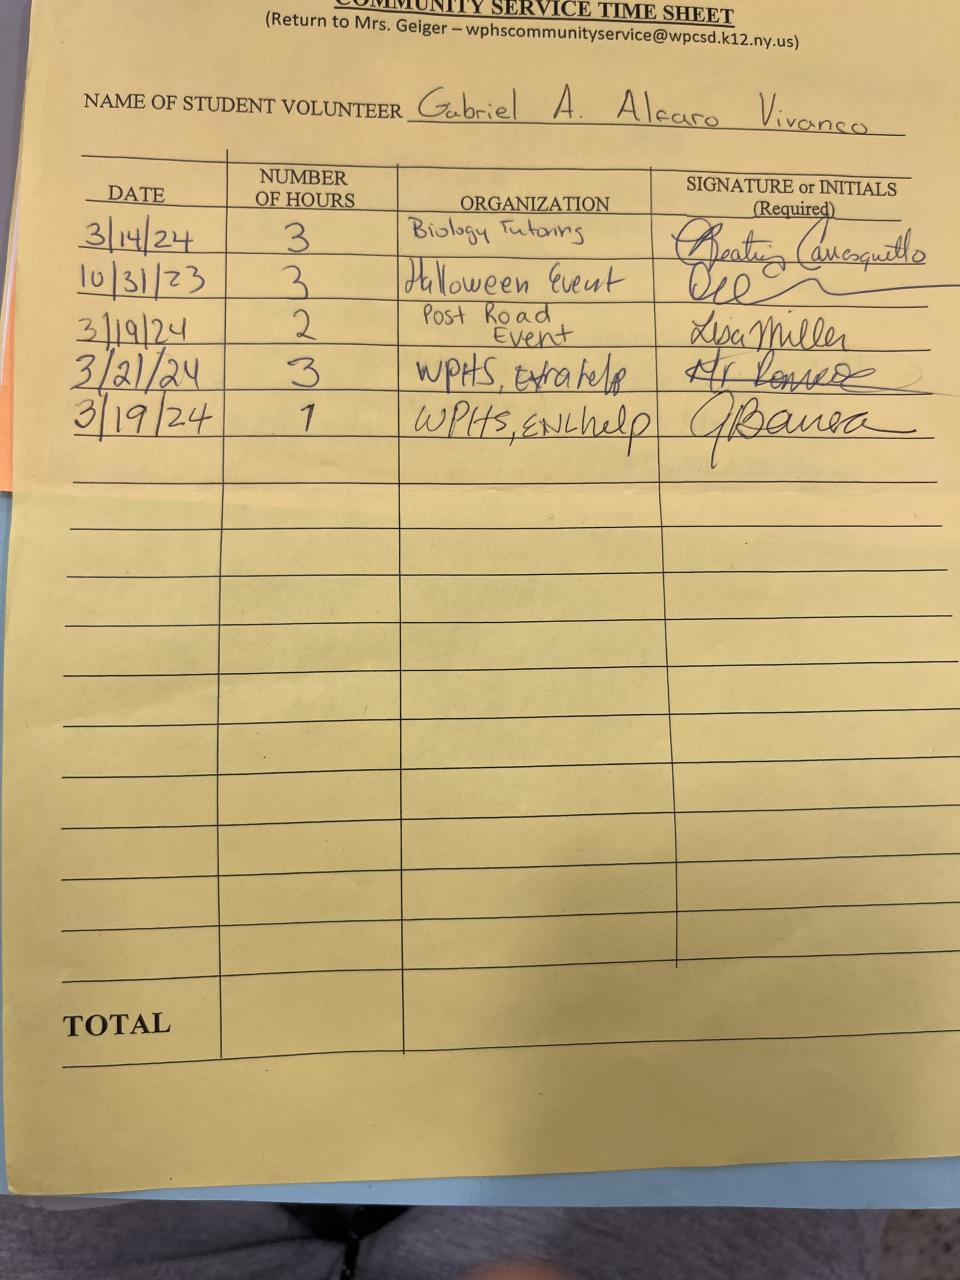 COMMUNITY SERVICE TIME SHEET
(Return to Mrs. Geiger – wphscommunityservice@wpcsd.k12.ny.us)
NAME OF STUDENT VOLUNTEER Gabriel A. Alfaro Vivanco
DATE NUMBER OF HOURS ORGANIZATION SIGNATURE or INITIALS (Required)
3/14/24 3 Biology Tutoring
10/31/23 3 Halloween Event
3/19/24 2 Post Road Event Lisa Miller
3/21/24 3 WPHS, Extra help Mr
3/19/24 1 WPHS, ENL help
TOTAL